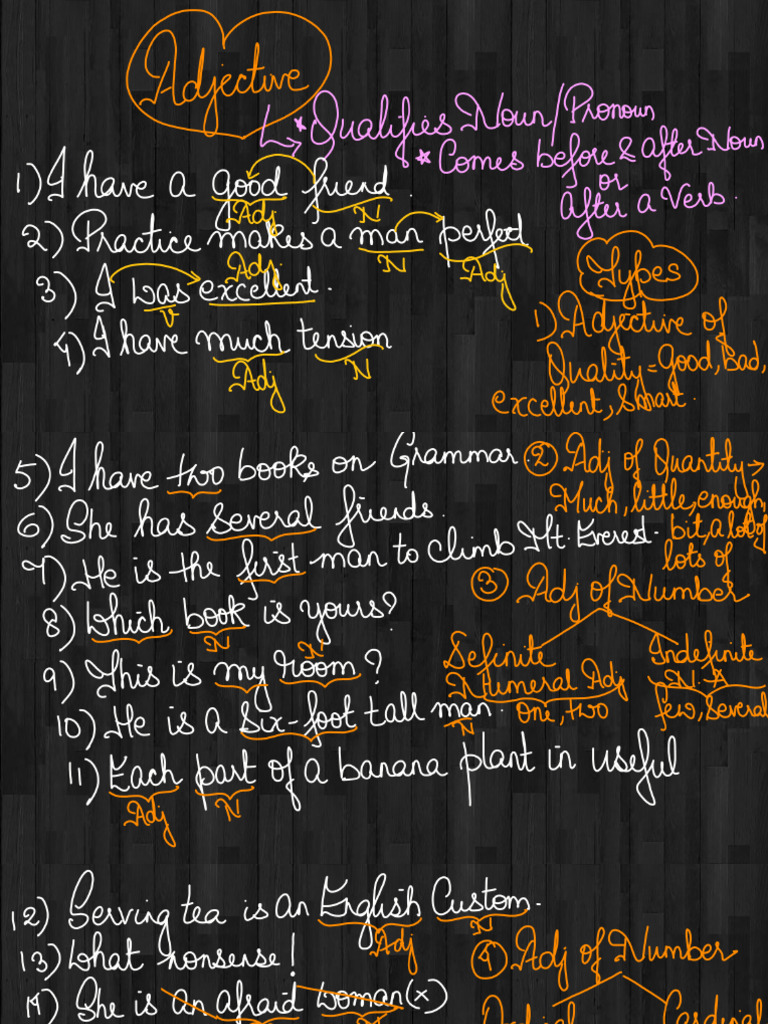 Adjective
* Qualifies Noun/Pronoun
* Comes before & after Noun
or
After a Verb.
1) I have a good friend.
Adj N
2) Practice makes a man perfect
N Adj
Adj
3) I was excellent.
V
4) I have much tension
Adj N
Types
1) Adjective of
Quality = Good, Bad,
excellent, Smart.
5) I have two books on Grammar.
6) She has several friends.
7) He is the first man to climb Mt. Everest.
8) Which book is yours?
N
9) This is my room?
N
10) He is a six-foot tall man.
N
11) Each part of a banana plant in useful
Adj N
② Adj of Quantity →
Much, little, enough,
bit, a lot of
lots of
③ Adj of Number
Definite Indefinite
Numeral Adj N. A
one, two few, several
12) Serving tea is an English Custom.
Adj N
13) What nonsense!
14) She is an afraid woman (x)
④ Adj of Number
Ordinal Cardinal